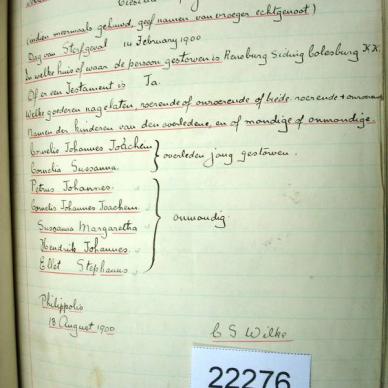 (indien meermaals gehuwd, geef namen van vroeger echtgenoot)
Dag van Sterfgeval 14 February 1900
In welke huis of waar de persoon gestorwen is Rensburg Siding Colesburg K.K.
Of er een Testament is Ja.
Welke goederen nagelaten, roerende of onroerende of beide. roerende + onroerende
Namen der kinderen van den overledene, en of mondige of onmondige.
Cornelis Johannes Jochem
Cornelia Susanna.
overleden jong gestorwen.
Petrus Johannes.
Cornelis Johannes Joachem
Susanna Margaretha
Hendrik Johannes.
Ellet Stephanus
onmondig
Philippolis
18 August 1900
C S Wilke
22276